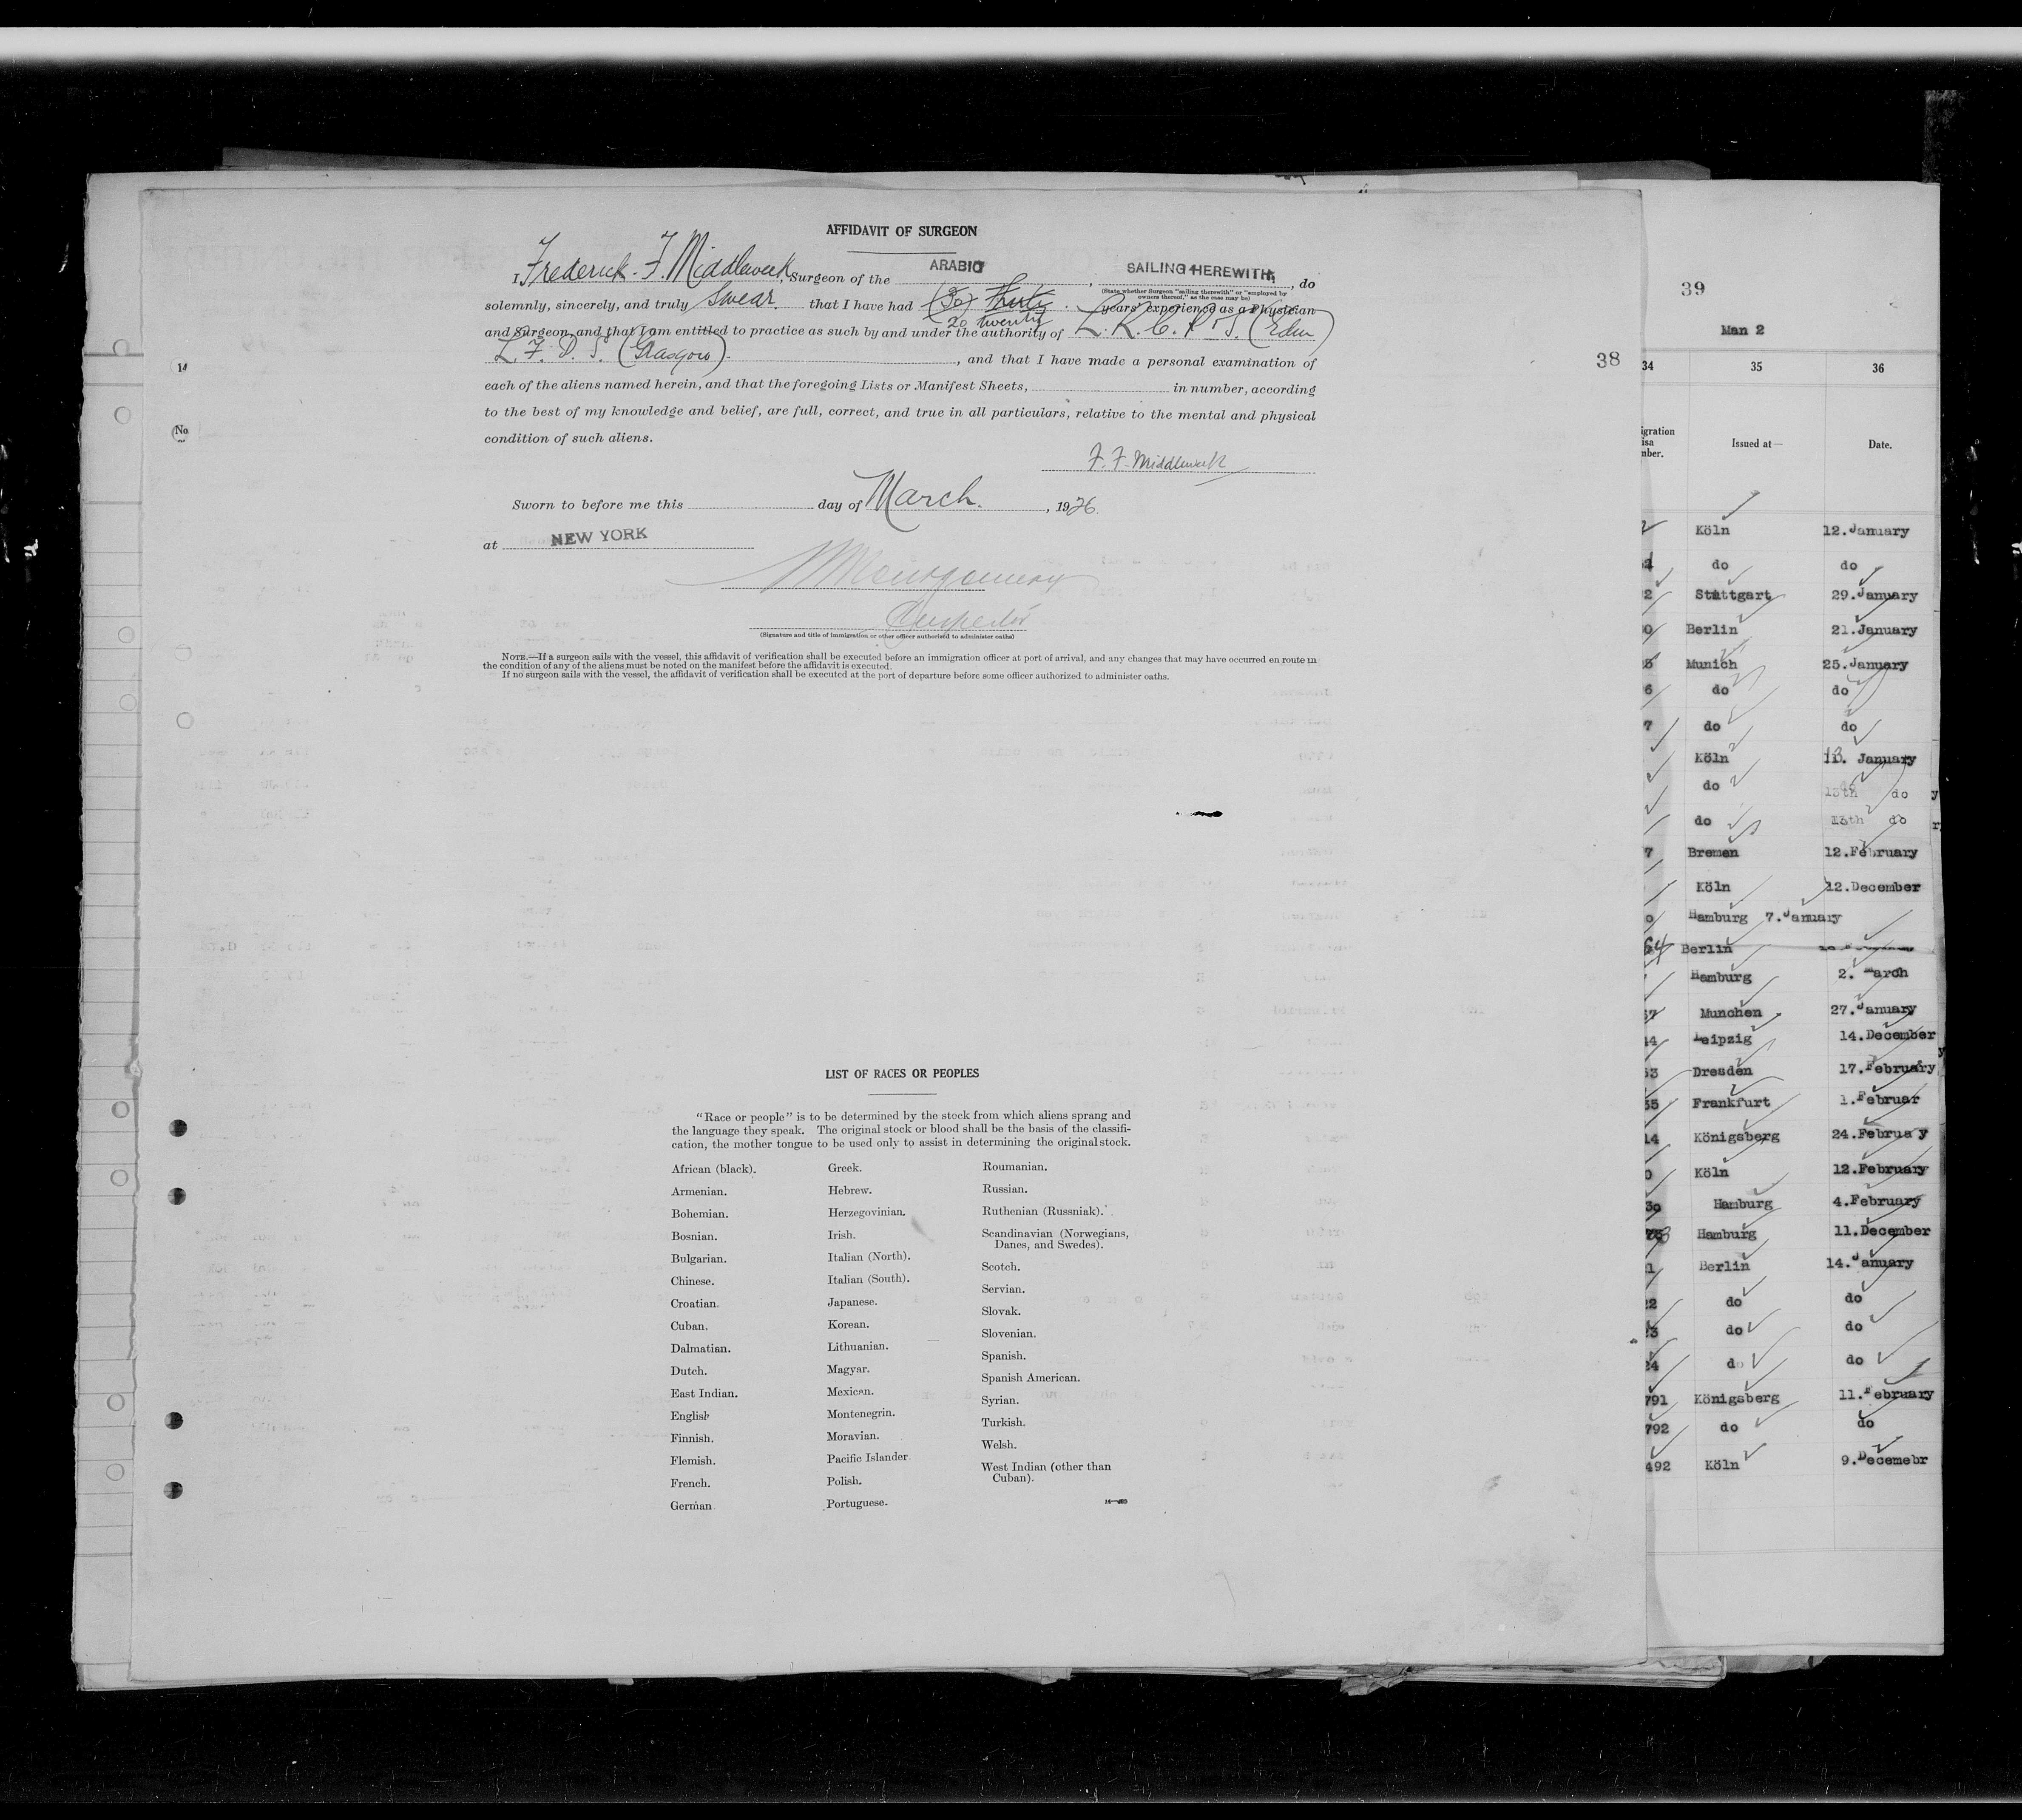 AFFIDAVIT OF SURGEON
I, Frederick. F. Middleweek, Surgeon of the ARABIC, SAILING HEREWITH, do
(State whether Surgeon "sailing therewith" or "employed by
owners thereof," as the case may be)
solemnly, sincerely, and truly swear that I have had (30) Thirty years' experience as a Physician
20 twenty
and Surgeon, and that I am entitled to practice as such by and under the authority of L. R. C. P. & S. (Edin)
L. F. P. S. (Glasgow), and that I have made a personal examination of
each of the aliens named herein, and that the foregoing Lists or Manifest Sheets, in number, according
to the best of my knowledge and belief, are full, correct, and true in all particulars, relative to the mental and physical
condition of such aliens.
F. F. Middleweek
Sworn to before me this day of March. , 1926.
at NEW YORK
Montgomery
Inspector
(Signature and title of immigration or other officer authorized to administer oaths)
NOTE.—If a surgeon sails with the vessel, this affidavit of verification shall be executed before an immigration officer at port of arrival, and any changes that may have occurred en route in
the condition of any of the aliens must be noted on the manifest before the affidavit is executed.
If no surgeon sails with the vessel, the affidavit of verification shall be executed at the port of departure before some officer authorized to administer oaths.
38
No
LIST OF RACES OR PEOPLES
"Race or people" is to be determined by the stock from which aliens sprang and
the language they speak. The original stock or blood shall be the basis of the classifi-
cation, the mother tongue to be used only to assist in determining the original stock.
African (black).
Armenian.
Bohemian.
Bosnian.
Bulgarian.
Chinese.
Croatian.
Cuban.
Dalmatian.
Dutch.
East Indian.
English
Finnish.
Flemish.
French.
German
Greek.
Hebrew.
Herzegovinian.
Irish.
Italian (North).
Italian (South).
Japanese.
Korean.
Lithuanian.
Magyar.
Mexican.
Montenegrin.
Moravian.
Pacific Islander
Polish.
Portuguese.
Roumanian.
Russian.
Ruthenian (Russniak).
Scandinavian (Norwegians,
Danes, and Swedes).
Scotch.
Servian.
Slovak.
Slovenian.
Spanish.
Spanish American.
Syrian.
Turkish.
Welsh.
West Indian (other than
Cuban).
39
Man 2
34 35 36
Issued at— Date.
Köln 12.January
do do
2 Stuttgart 29.January
0 Berlin 21.January
Munich 25.January
6 do do
7 do do
Köln January
do 13th do
do 13th do
7 Bremen 12.February
Köln 12.December
Hamburg 7.January
64 Berlin
Hamburg 2. March
57 Munchen 27.January
44 Leipzig 14.December
53 Dresden 17.February
55 Frankfurt 1.Februar
14 Königsberg 24.Februa y
0 Köln 12.February
30 Hamburg 4.February
Hamburg 11.December
1 Berlin 14.January
22 do do
23 do do
24 do do
791 Königsberg 11.February
792 do do
492 Köln 9.Decemebr